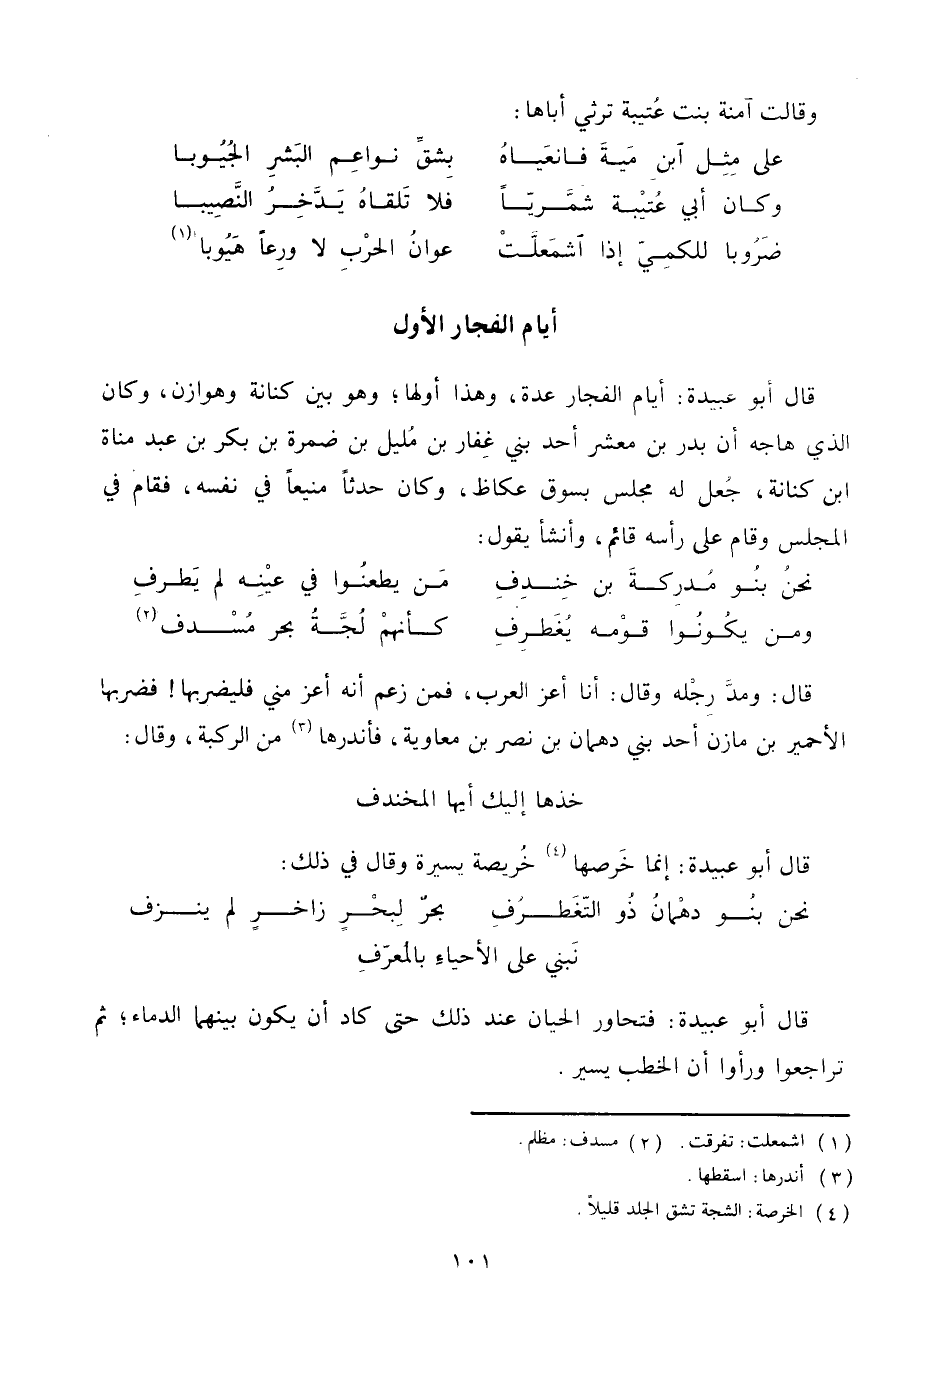 وقالت آمنة بنت عُتيبة ترثي أباها :
على مِثِل آبن مَيةَ فانعَياهُ بشقِّ نواعِم البَشرِ الجُيُوبا
وكان أبي عُتَيْبة شَمَّريّاً فلا تَلقاهُ يَدَّخِرُ النَّصِيبا
ضَرُوبا للكميّ إذا آشمَعلَّتْ عوانُ الحَرْبِ لا ورِعاً هَيُوبا (١)
أيام الفجار الأول
قال أبو عبيدة : أيام الفجار عدة ، وهذا أولها ؛ وهو بين كنانة وهوازن ، وكان
الذي هاجه أن بدر بن معشر أحد بني غِفار بن مُليل بن ضمرة بن بكر بن عبد مناة
ابن كنانة ، جُعل له مجلس بسوق عكاظ ، وكان حدثاً منيعاً في نفسه ، فقام في
المجلس وقام على رأسه قائم ، وأنشأ يقول :
نحنُ بنُو مُدركةَ بن خِندِفِ مَن يطعنُوا في عيْنِه لم يَطرفِ
ومن يكُونُوا قوْمه يُغَطرِفِ كأنهمْ لُجَّةُ بحر مُسْدف (٢)
قال : ومدَّ رجْله وقال : أنا أعز العرب ، فمن زعم أنه أعز مني فليضربها ! فضربها
الأحمير بن مازن أحد بني دهمان بن نصر بن معاوية ، فأندرها (٣) من الركبة ، وقال :
خذها إليك أيها المخندف
قال أبو عبيدة : إنما خَرصها (٤) خُريصة يسيرة وقال في ذلك :
نحن بنُو دهْمانُ ذُو التّغَطرُفِ بحرٌ لِبحْرٍ زاخرٍ لم ينزف
نَبني على الأحياء بالمعرّفِ
قال أبو عبيدة : فتحاور الحيان عند ذلك حتى كاد أن يكون بينهما الدماء ؛ ثم
تراجعوا ورأوا أن الخطب يسير .
(١) اشمعلت : تفرقت . (٢) مسدف : مظلم .
(٣) أندرها : اسقطها .
(٤) الخرصة : الشجة تشق الجلد قليلاً .
١٠١